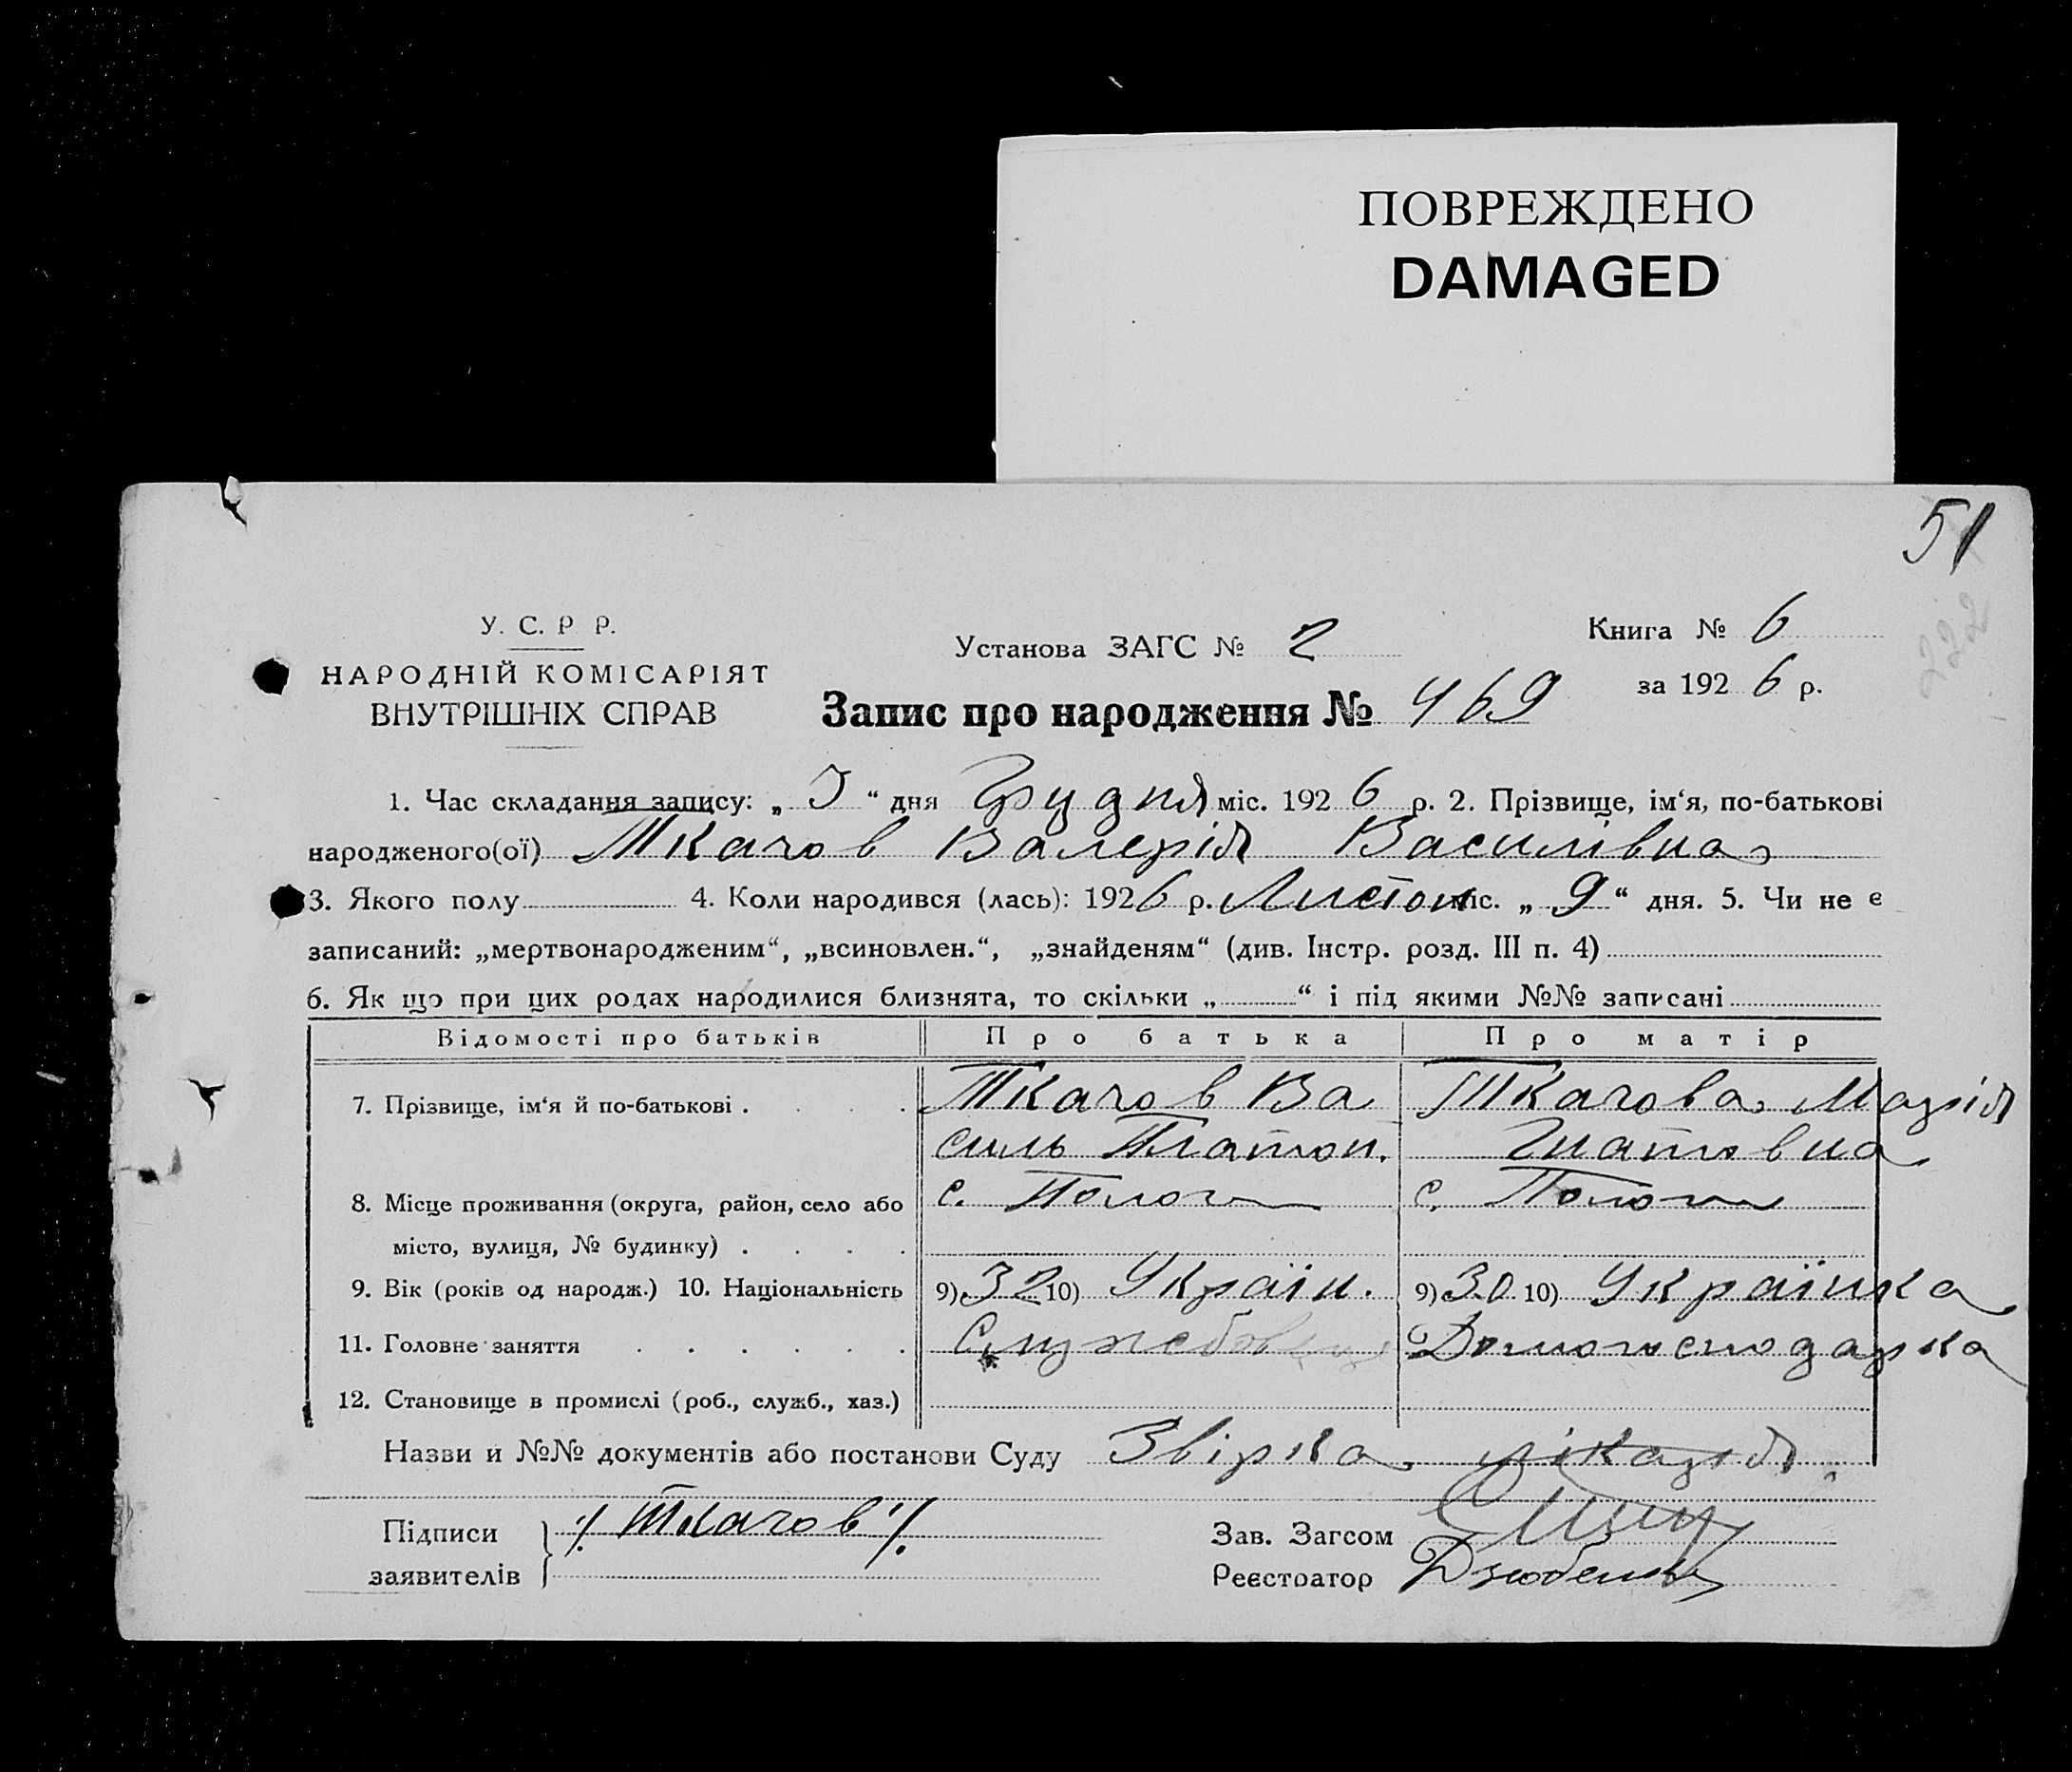 ПОВРЕЖДЕНО
DAMAGED
51
222
У. С. Р Р.
НАРОДНІЙ КОМІСАРІЯТ
ВНУТРІШНІХ СПРАВ
Установа ЗАГС № 2
Книга № 6
за 1926 р.
Запис про народження № 469
1. Час складання запису: „ 3 “ дня Грудня міс. 1926 р. 2. Прізвище, ім‘я, по-батькові
народженого(ої) Ткачов Валерія Василівна
3. Якого полу 4. Коли народився (лась): 1926 р. Листоп міс. „ 9 “ дня. 5. Чи не є
записаний: „мертвонародженим“, „всиновлен.“, „знайденям“ (див. Інстр. розд. III п. 4)
6. Як що при цих родах народилися близнята, то скільки „ “ і під якими №№ записані
Відомості про батьків Про батька Про матір
7. Прізвище, ім‘я й по-батькові . . . . . Ткачов Ва Ткачова Марія
силь Платон. Гнатовна
8. Місце проживання (округа, район, село або с. Пологи с. Пологи
місто, вулиця, № будинку) . . . .
9. Вік (років од народж.) 10. Національність 9) 32 10) Україн. 9) 30 10) Українка
11. Головне заняття . . . . . . Службовець Домогосподарка
12. Становище в промислі (роб., служб., хаз.)
Назви й №№ документів або постанови Суду Звірка лікаря.
Підписи /. Ткачов /.
заявителів
Зав. Загсом
Реєстратор Дзюбенко